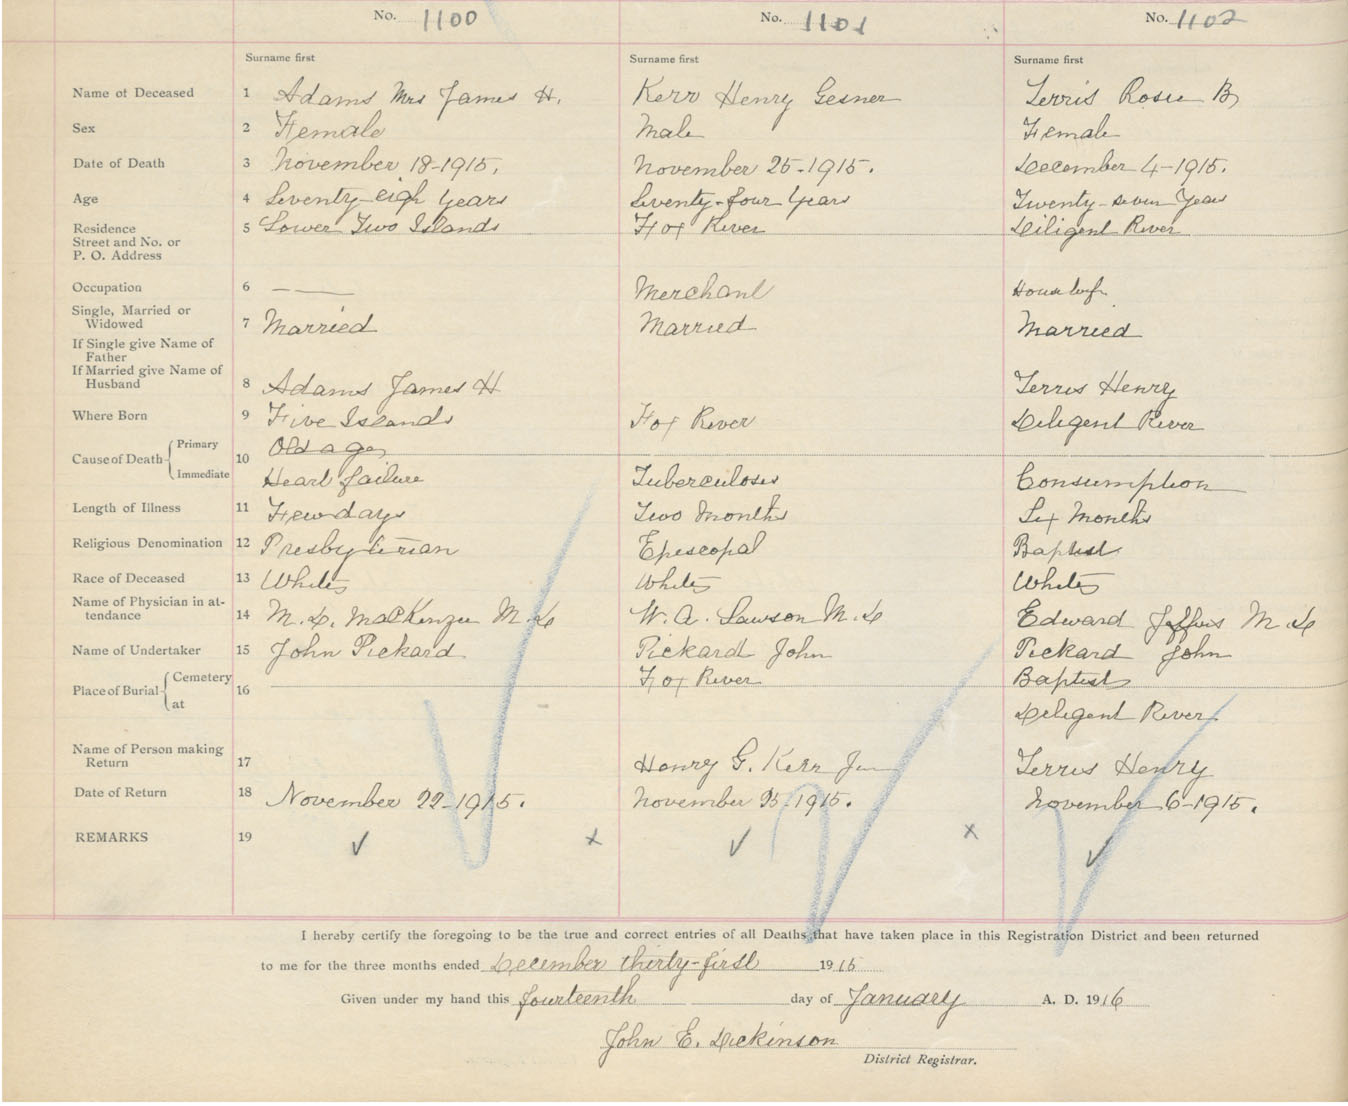 No. 1100 No. 1101 No. 1102
Surname first Surname first Surname first
Name of Deceased 1 Adams Mrs James H. Kerr Henry Gesner Terris Rosie B
Sex 2 Female Male Female
Date of Death 3 November 18-1915. November 25-1915. December 4-1915.
Age 4 Seventy-eigh years Seventy-four years Twenty-seven Years
Residence 5 Lower Two Islands Fox River Diligent River
Street and No. or
P. O. Address
Occupation 6 — Merchant Housewife
Single, Married or
Widowed 7 Married Married Married
If Single give Name of
Father
If Married give Name of
Husband 8 Adams James H Terris Henry
Where Born 9 Five Islands Fox River Deligent River
Cause of Death 10 Primary Old age
Immediate Heart failure Tuberculoses Consumption
Length of Illness 11 Few days Two Months Six Months
Religious Denomination 12 Presbyterian Episcopal Baptist
Race of Deceased 13 White White White
Name of Physician in at-
tendance 14 M. D. MacKenzie M. D W. A. Lawson M. D Edward Jeffers M D
Name of Undertaker 15 John Pickard Pickard John Pickard John
Place of Burial 16 Cemetery Fox River Baptist
at Deligent River.
Name of Person making
Return 17 Henry G. Kerr Jun Terris Henry
Date of Return 18 November 22-1915. November 25-1915. November 6-1915.
REMARKS 19 ✓ x ✓ x ✓
I hereby certify the foregoing to be the true and correct entries of all Deaths that have taken place in this Registration District and been returned
to me for the three months ended December thirty-first 1915
Given under my hand this fourteenth day of January A. D. 1916
John E. Dickinson
District Registrar.